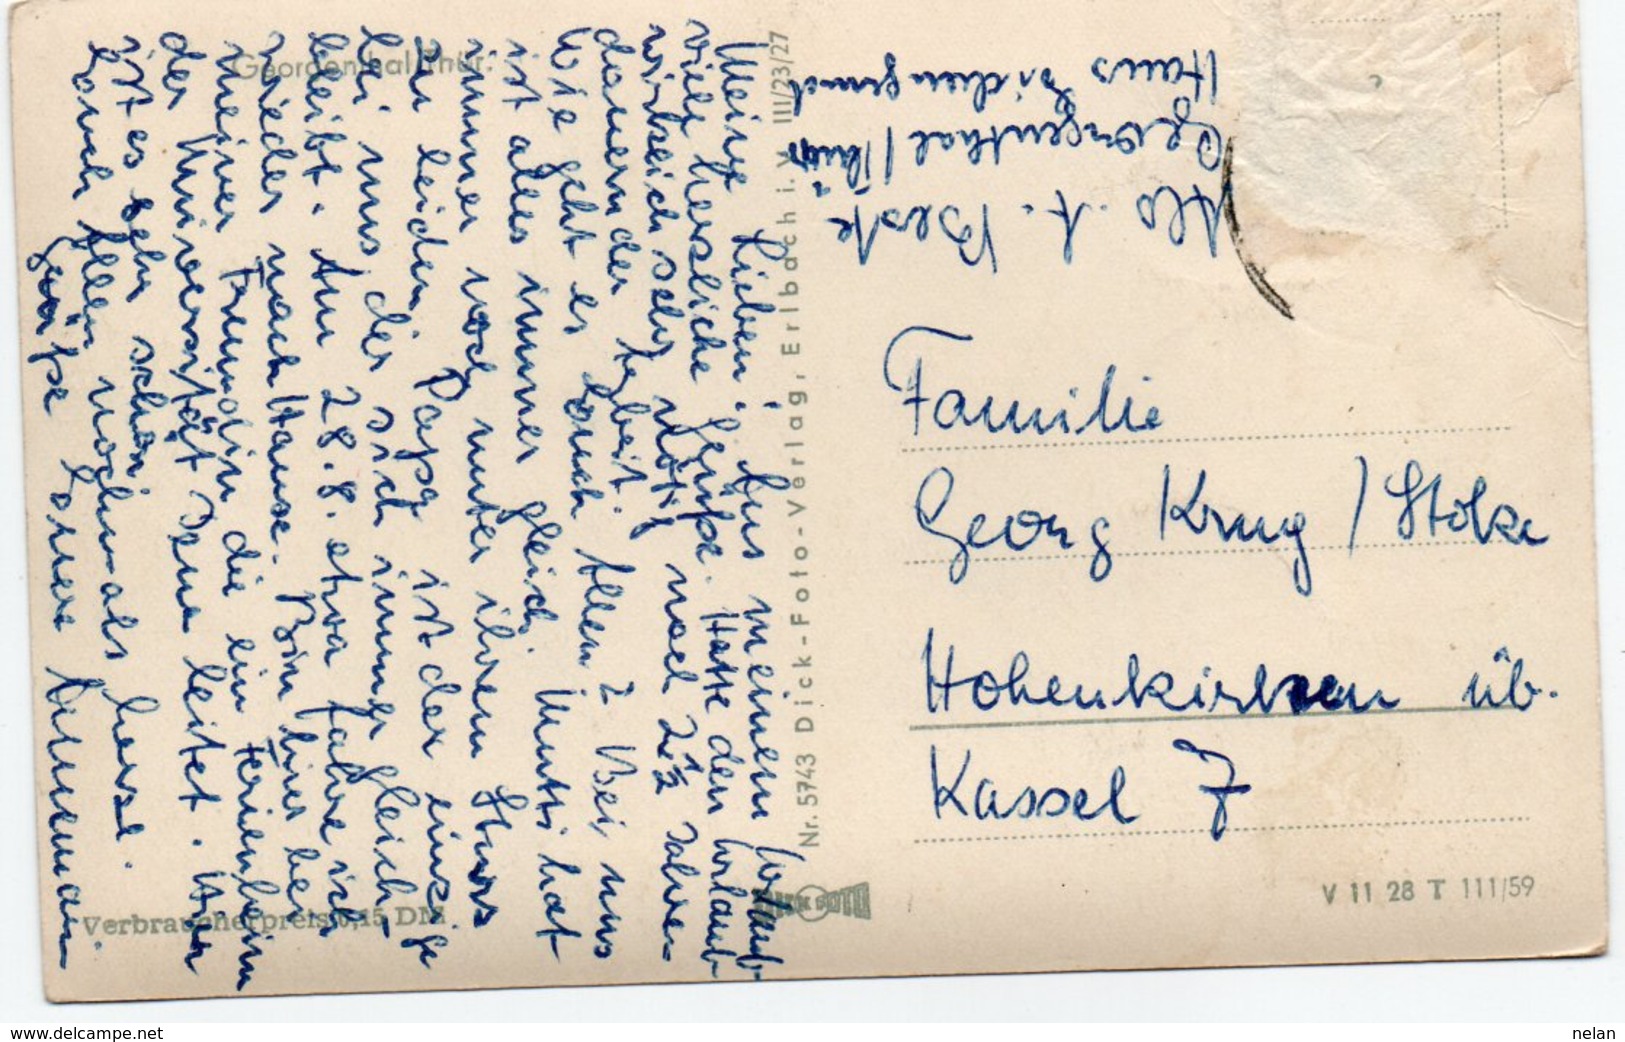 Georgenthal/Thür.
Meine Lieben! Aus meinem Urlaub
viele herzliche Grüße. Hatte den Urlaub
wirklich sehr nötig nach 2½ Jahre
dauernder Arbeit.
Wie geht es Euch Allen? Bei uns
ist alles immer gleich. Mutti hat
immer noch unter ihrem
zu leiden. Papa ist der einzige
bei uns der sich immer gleich-
bleibt. Am 28.8. etwa fahre ich
wieder nach Hause. Bin hier bei
meiner Freundin die ein Ferienheim
der Universität Jena leitet. Hier
ist es sehr schön.
Euch Allen nochmals herzl.
Grüße Eure Annemarie.
Verbraucherpreis 0,15 DM
Nr. 5743 Dick-Foto-Verlag, Erlbach i. V. III/23/27
DICK FOTO
Abs. A.
Georgenthal/Thür
Haus
Familie
Georg Krug / Stolze
Hohenkirchen üb.
Kassel 7
V 11 28 T 111/59
www.delcampe.net
nelan